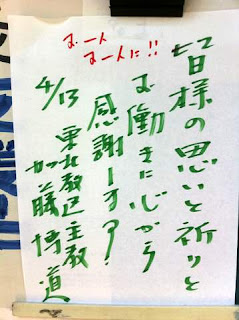 皆様の思いと祈りと
お働きに心から
お一人
お一人に!!
感謝します
4/13
東北教区主教
加藤博道